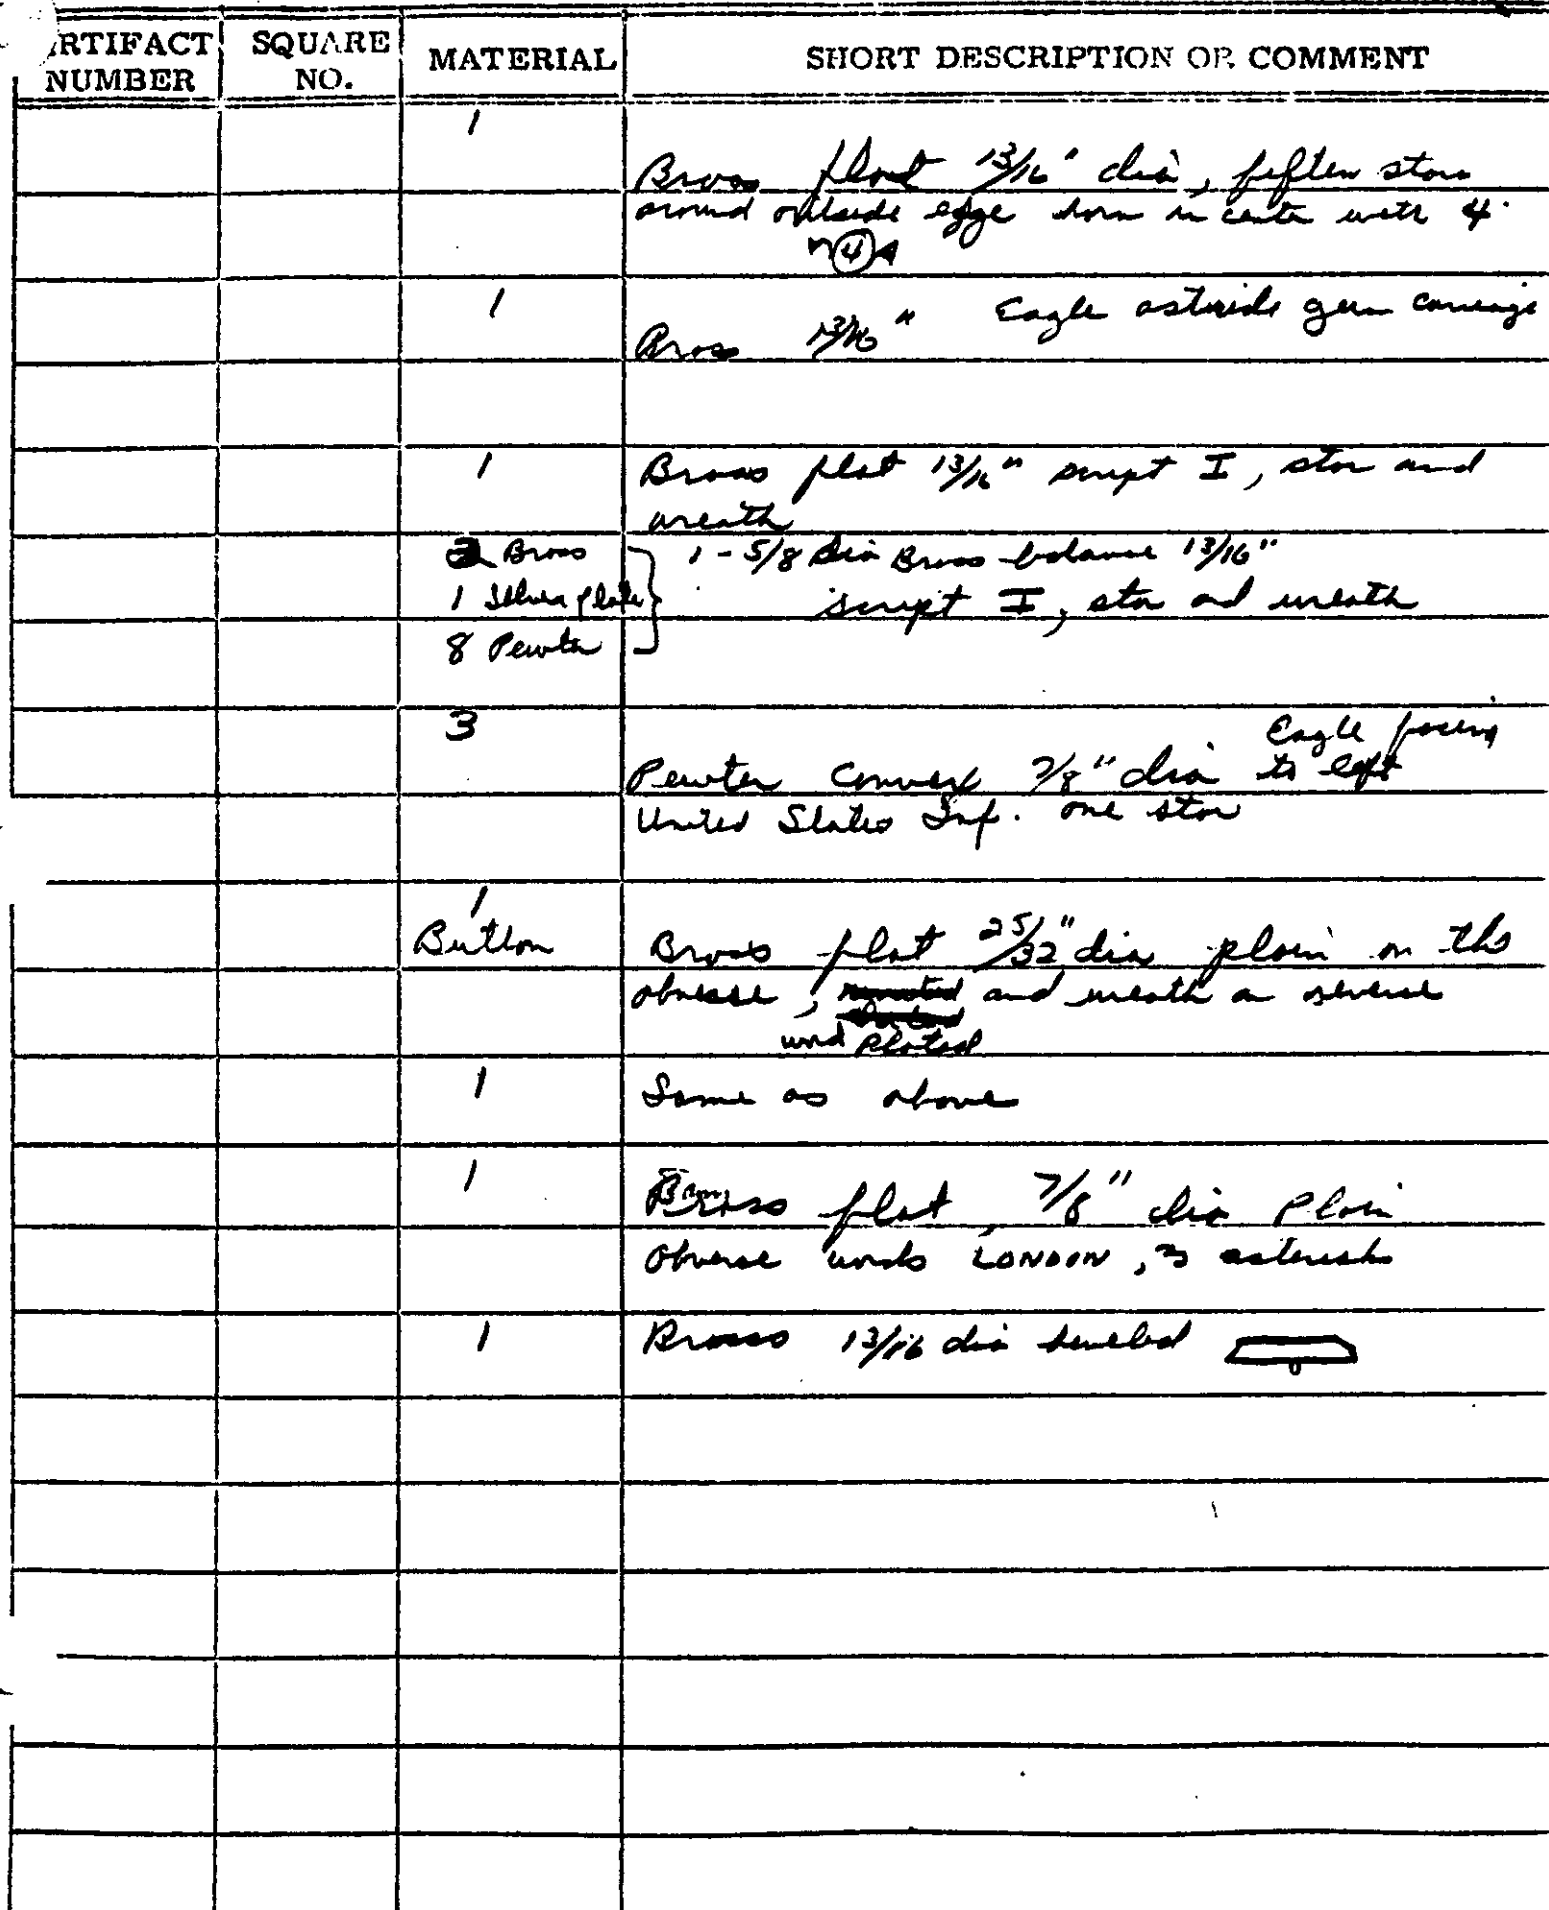 RTIFACT NUMBER SQUARE NO. MATERIAL SHORT DESCRIPTION OR COMMENT
1
Brass flat 13/16" dia, fiften stars
around outside edge horn in center with 4
④
1 Eagle astride gun carriage
Brass 13/16"
1 Brass flat 13/16" script I, star and
wreath
2 Brass 1 - 5/8 dia Brass balance 13/16"
1 Silver plate script I, star and wreath
8 Pewter
3 Eagle facing
Pewter Convex 7/8" dia to left
United States Inf. one star
1
Button Brass flat 25/32" dia plain on the
obverse, and wreath on reverse
word Plated
1 Same as above
1 Brass flat, 7/8" dia Plain
Obverse words LONDON, 3 asterisks
1 Brass 13/16 dia beveled